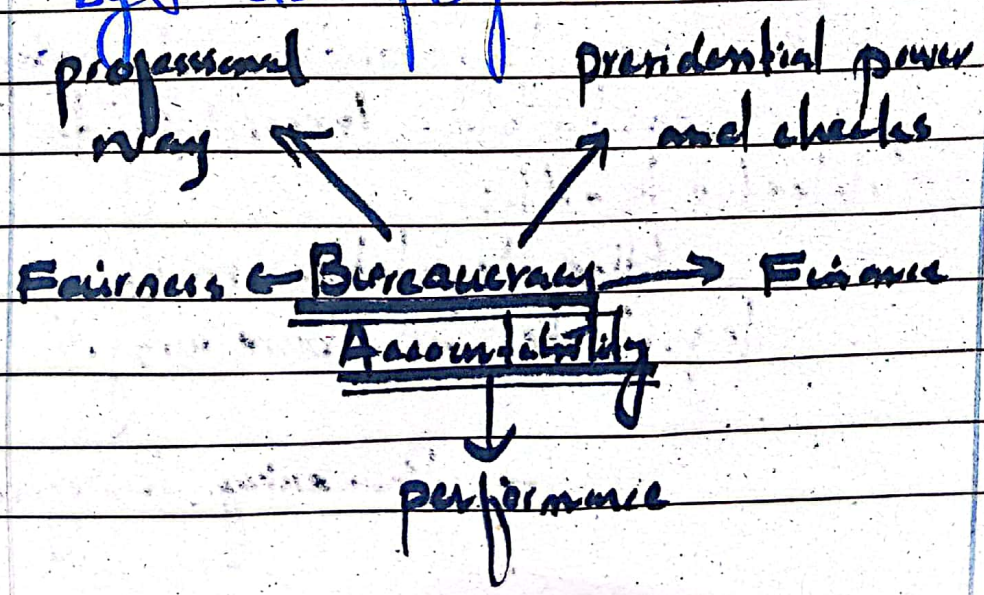 professional
way
presidential power
and checks
Fairness ← Bureaucracy → Finance
Accountability
performance